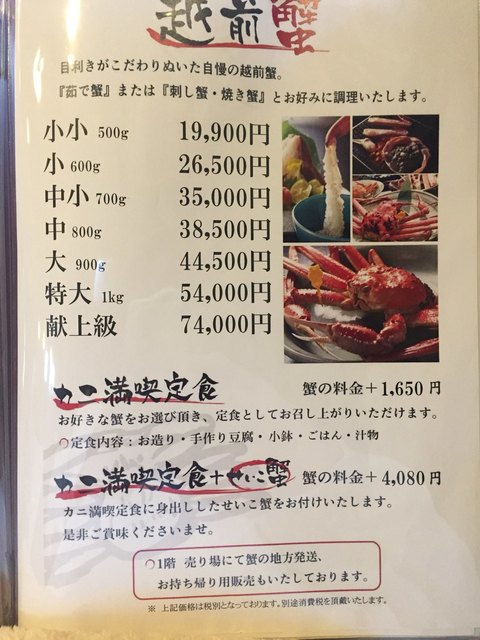 越前蟹
目利きがこだわりぬいた自慢の越前蟹。
『茹で蟹』または『刺し蟹・焼き蟹』とお好みに調理いたします。
小小 500g 19,900円
小 600g 26,500円
中小 700g 35,000円
中 800g 38,500円
大 900g 44,500円
特大 1kg 54,000円
献上級 74,000円
カニ満喫定食 蟹の料金+1,650円
お好きな蟹をお選び頂き、定食としてお召し上がりいただけます。
○定食内容:お造り・手作り豆腐・小鉢・ごはん・汁物
カニ満喫定食+せいこ蟹 蟹の料金+4,080円
カニ満喫定食に身出ししたせいこ蟹をお付けいたします。
是非ご賞味くださいませ。
○1階 売り場にて蟹の地方発送、
お持ち帰り用販売もいたしております。
※ 上記価格は税別となっております。別途消費税を頂戴いたします。